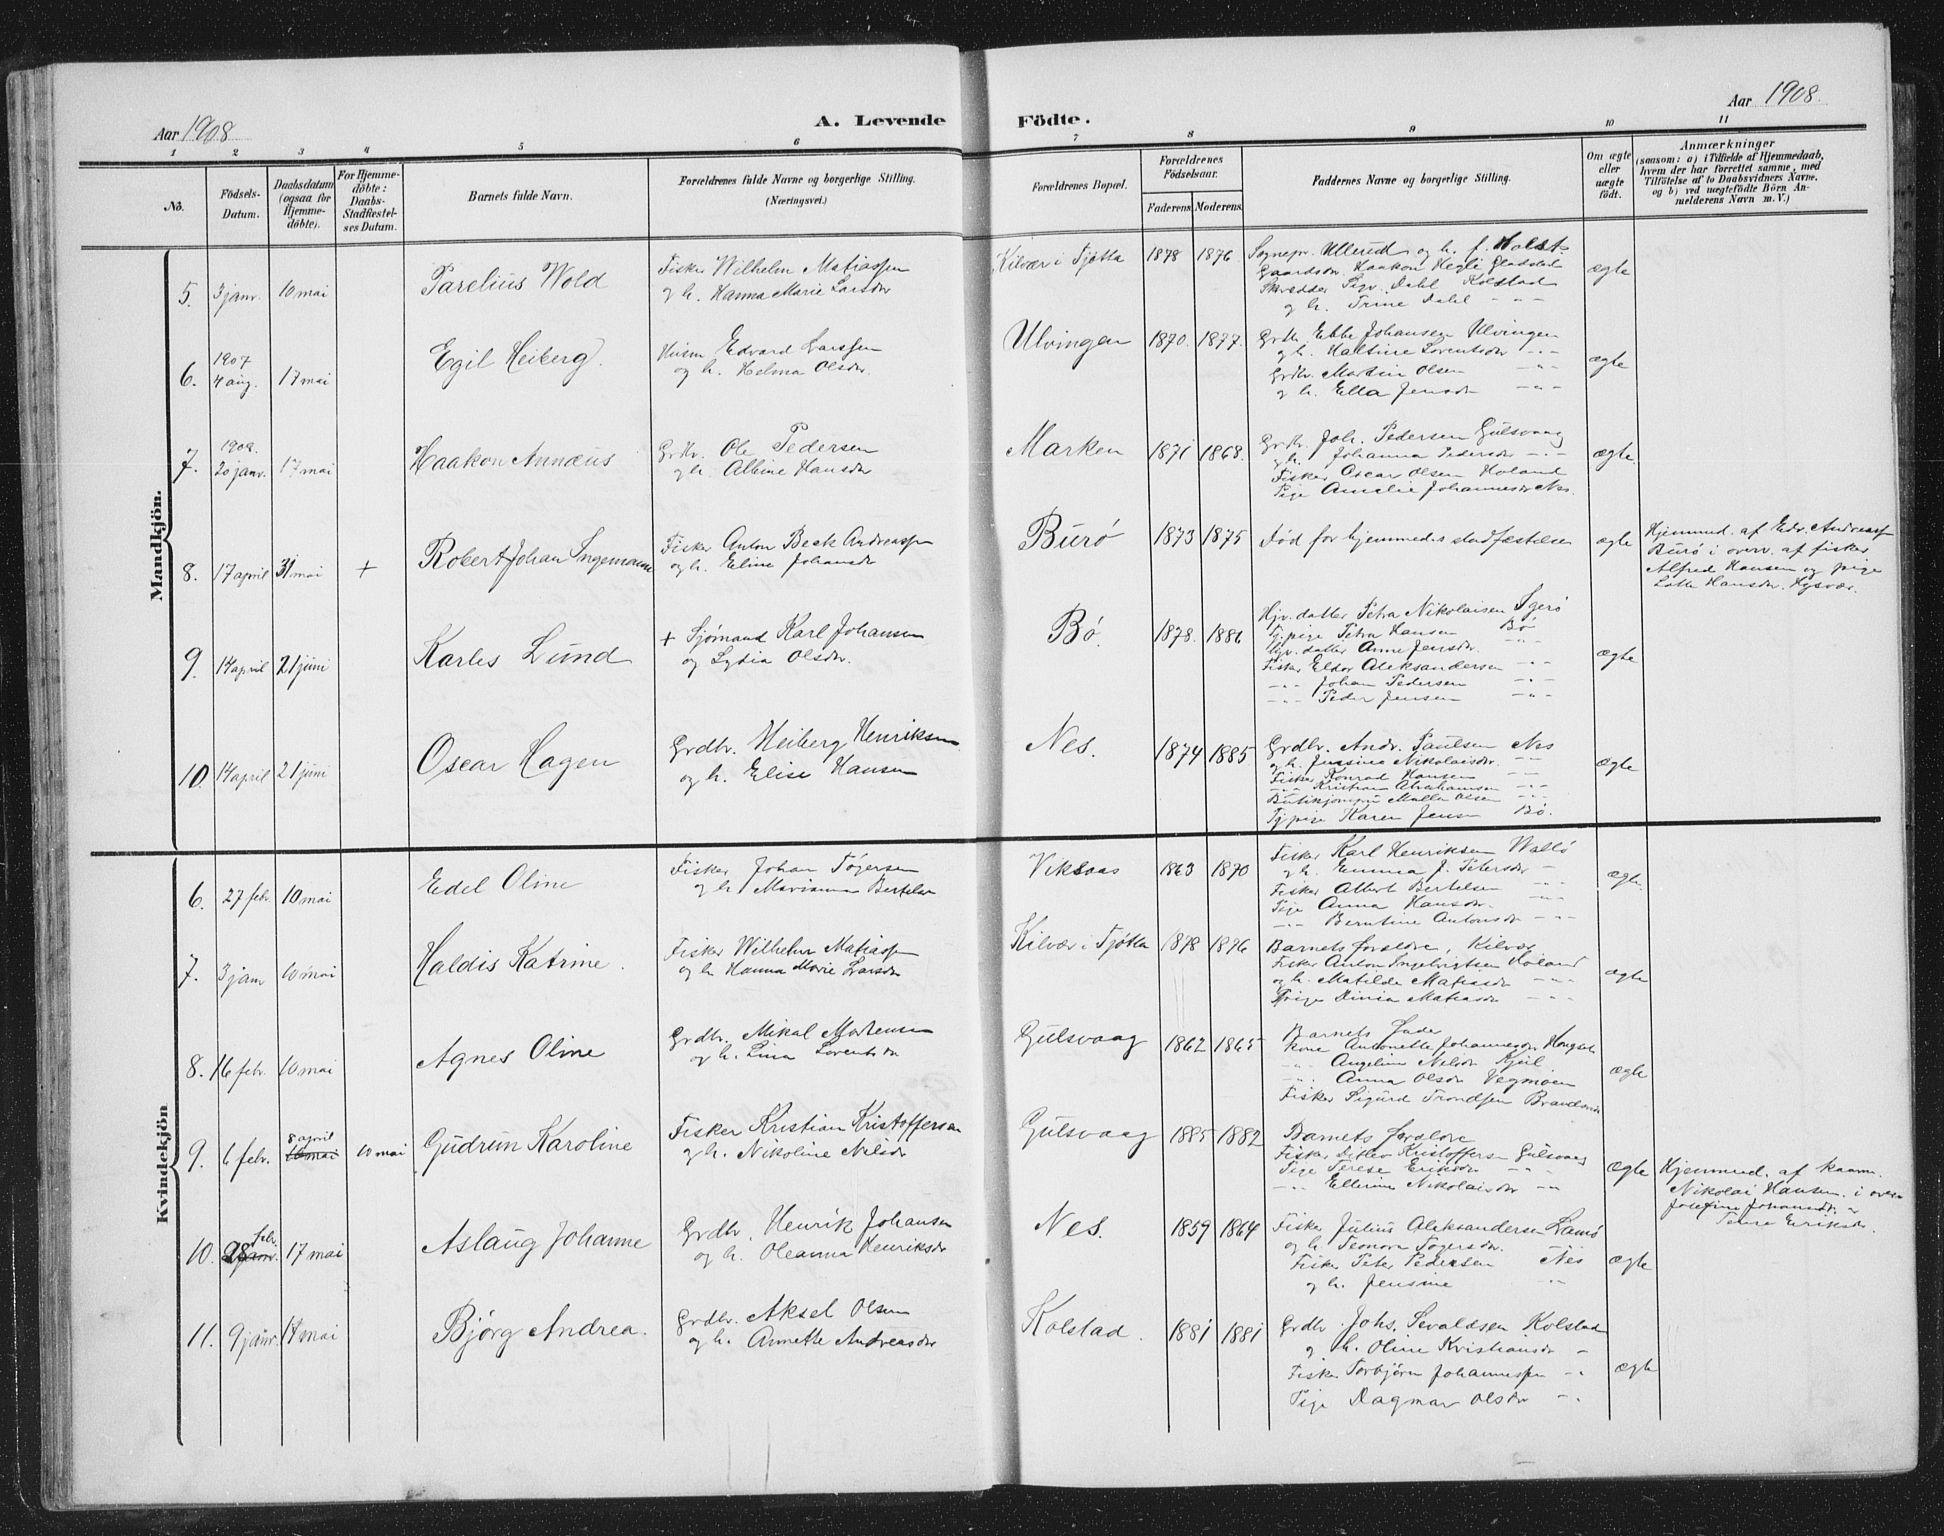 Aar 1908
A. Levende Födte.
Aar 1908.
1 2 3 4 5 6 7 8 9 10 11
No.
Födsels-Datum.
Daabsdatum (ogsaa for Hjemmedöbte).
For Hjemmedöbte: Daabs-Stadfæstelses Datum.
Barnets fulde Navn.
Forældrenes fulde Navne og borgerlige Stilling.
(Næringsvei.)
Forældrenes Bopæl.
Forældrenes Födselsaar.
Faderens. Moderens.
Faddernes Navne og borgerlige Stilling.
Om ægte eller uægte födt.
Anmærkninger
(saasom: a) i Tilfælde af Hjemmedaab, hvem der har forrettet samme, med Tilföielse af to Daabsvidners Navne, og b) ved uægtefödte Börn Anmelderens Navn m. V.)
Mandkjön.
5. 3 janr. 10 mai Parelius Wold
Fisker Wilhelm Matiassen
og h. Hanna Marie Larsdr
Kilvær i Tjøtta 1878 1876
Sognepr. Ullerud og h. f. Holst
Gaardsdr. Haakon Hegli
Skrædder Sigv. Dahl Kolstad
og h. Trine Dahl -"-
ægte
6. 1907 4 aug. 17 mai Egil Heiberg.
Husm Edvard Larssen
og h. Helma Olsdr.
Ulvingen 1870. 1877.
Grdb. Ebbe Johansen Ulvingen
og h. Haltine Lorentsdr -"-
Grdbr. Martin Olsen -"-
og h. Ella Jensdr -"-
ægte
7. 1908. 20 janr. 17 mai Haakon Annæus
Grdbr. Ole Pedersen
og h. Albine Hansdr
Marken 1871 1868.
Grdbr. Joh. Pedersen Gulsvaag
og h. Johanna Pedersdr -"-
Fisker Oscar Olsen Holand
Pige Amalie Johannesdr Nes.
ægte.
8. 17 april 31 mai + Robert Johan Ingemann
Fisker Anton Beck Andreassen
og h. Eline Johansdr
Burø 1873 1875
Død før hjemmed.s stadfæstelse
ægte
Hjemmed. af Edv. Andreassen
Burø i overv. af fisker
Alfred Hansen og pige
Lotte Hansdr. Hysvær.
9. 14 april 21 juni Karles Lund
+ Sjømand Karl Johansen
og Lydia Olsdr.
Bø. 1878. 1886
Hjv. datter Petra Nikolaisen Igerø
Tj.pige Petra Hansen Bø
Hjv. datter Anne Jensdr. -"-
Fisker Eldor Aleksandersen -"-
-"- Johan Pedersen -"-
-"- Peder Jensen -"-
ægte
10. 14 april 21 juni Oscar Hagen
Grdbr. Heiberg Henriksen
og h. Elise Hansen
Nes. 1874 1885
Grdbr. Andr. Paulsen Nes
og h. Jensine Nikolaisdr. -"-
Fisker Konrad Hansen -"-
-"- Kristian Abrahamsen -"-
Butikjomfru Malla Olsen -"-
Tj.pige Karen Jensen Bø.
ægte
Kvindekjön
6. 27 febr. 10 mai Edel Oline
Fisker Johan Tøgersen
og h. Marianna Bertelsdr
Viksaas 1863 1870
Fisker Karl Henriksen Vallø
og h. Emma J. Petersdr -
Fisker Albert Bertelsen -"-
Pige Anna Hansdr. -"-
-"- Berntine Antonsdr -"-
ægte.
7. 3 janr 10 mai Haldis Katrine.
Fisker Wilhelm Matiassen
og h. Hanna Marie Larsdr
Kilvær i Tjøtta 1878 1876
Barnets forældre, Kilvær
Fisker Anton Ingebrigtsen Holand
og h. Matilde Matiasdr -"-
Pige Dinia Matiasdr -"-
ægte
8. 16 febr. 10 mai Agnes Oline
Grdbr. Mikal Mortensen
og h. Lina Lorentsdr
Gulsvaag 1862 1865
Barnets fader
Kone Antonette Johannesdr
-"- Angeline Nelsdr Kjul
-"- Anna Olsdr Vegmoen
Fisker Sigurd Trondsen
ægte
9. 6 febr. 8 april 10 mai 10 mai Gudrun Karoline
Fisker Kristian Kristoffersen
og h. Nikoline Nilsdr
Gulsvaag 1885 1882
Barnets forældre
Fisker Ditlev Kristoffersen Gulsvaag
Pige Terese Eriksdr -"-
-"- Ellerine Nikolaisdr -"-
ægte
Hjemmed. af kaarm.
Nikolai Hansen i overv.
Josefine Johansdr. o
Terese Eriksdr.
10. 28 febr. 17 mai Aslaug Johanne
Grdbr. Henrik Johansen
og h. Oleanna Henriksdr
Nes. 1859 1864
Fisker Julius Aleksandersen Lamø
og h. Leonora Togersdr.
Fisker Peter Pedersen Nes
og h. Jensine -"-
ægte
11. 9 janr. 17 mai Bjørg Andrea.
Grdbr. Aksel Olsen
og h. Annette Andreasdr
Kolstad. 1881 1881
Grdbr. Johs. Sevaldsen Kolstad
og h. Oline Kristiansdr -
Fisker Torbjørn Johannessen -"-
Pige Dagmar Olsdr -"-
ægte